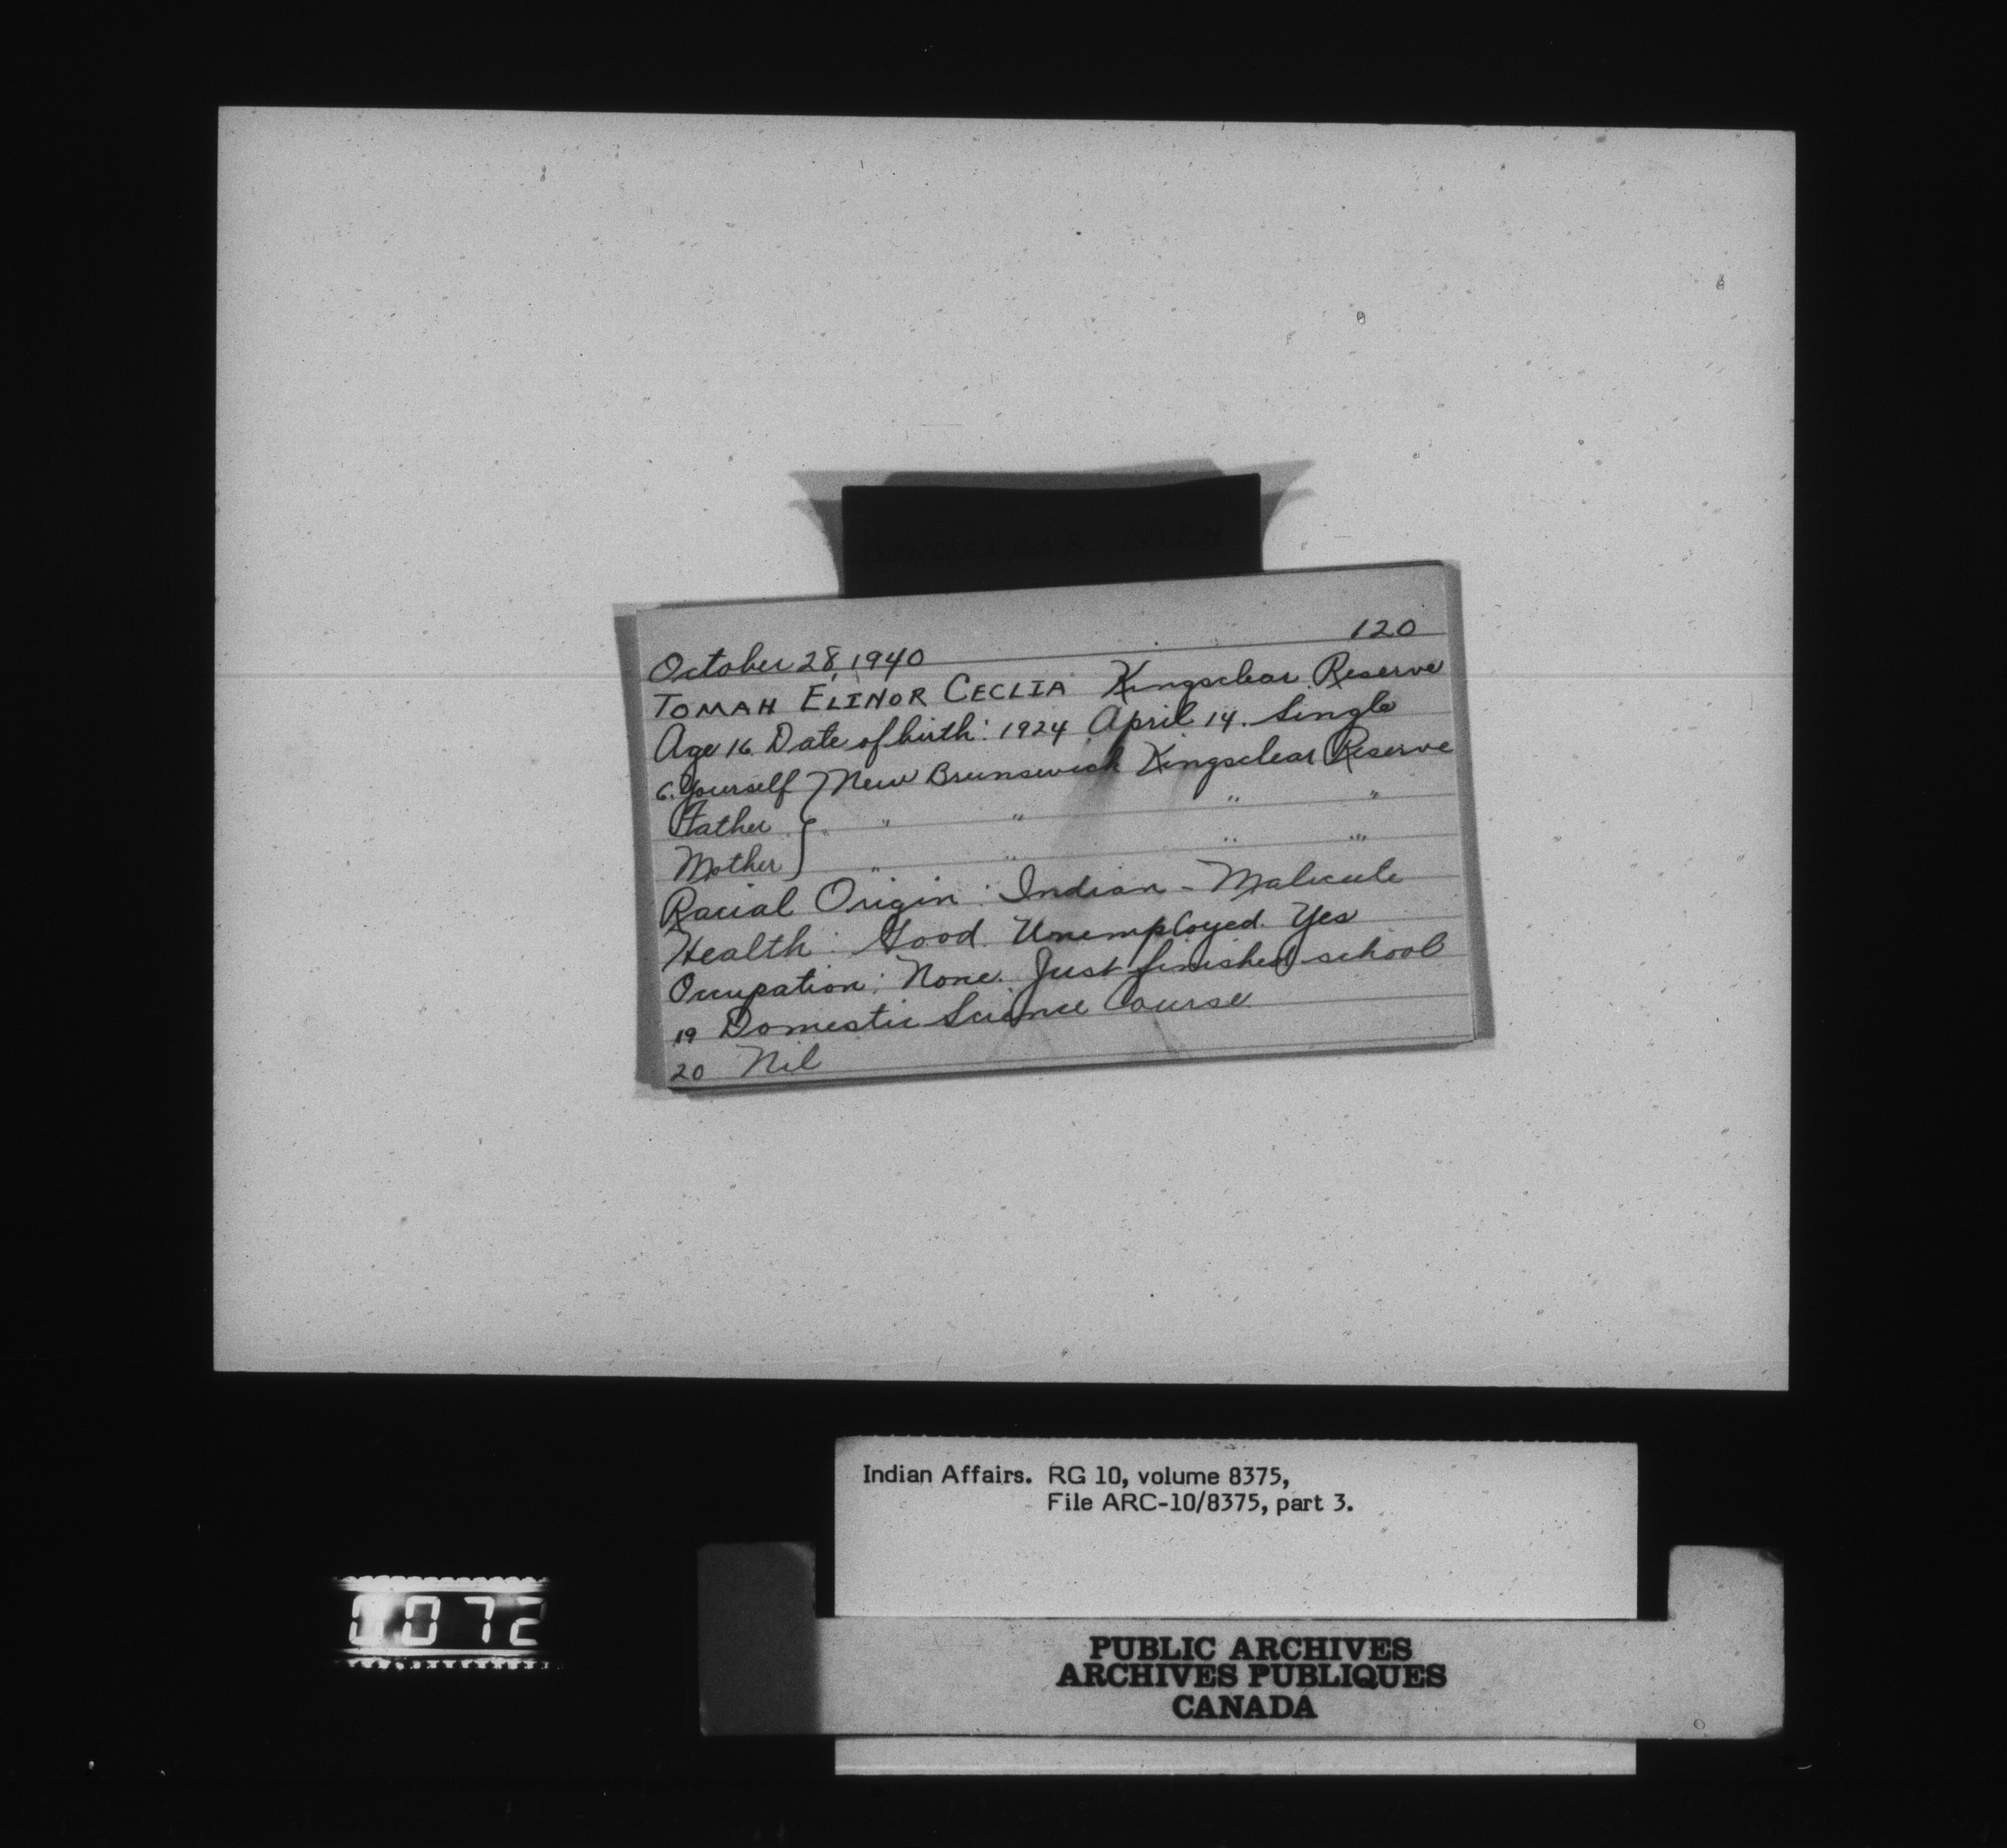 120
October 28, 1940
TOMAH ELINOR CECLIA Kingsclear Reserve
Age 16. Date of birth: 1924 April 14. Single
6. Yourself } New Brunswick Kingsclear Reserve
Father } " " " "
Mother } " " " "
Racial Origin: Indian - Malicule
Health: Good. Unemployed. Yes
Occupation: None. Just finished school
19 Domestic Science Course
20 Nil
Indian Affairs. RG 10, volume 8375,
File ARC-10/8375, part 3.
0072
PUBLIC ARCHIVES
ARCHIVES PUBLIQUES
CANADA